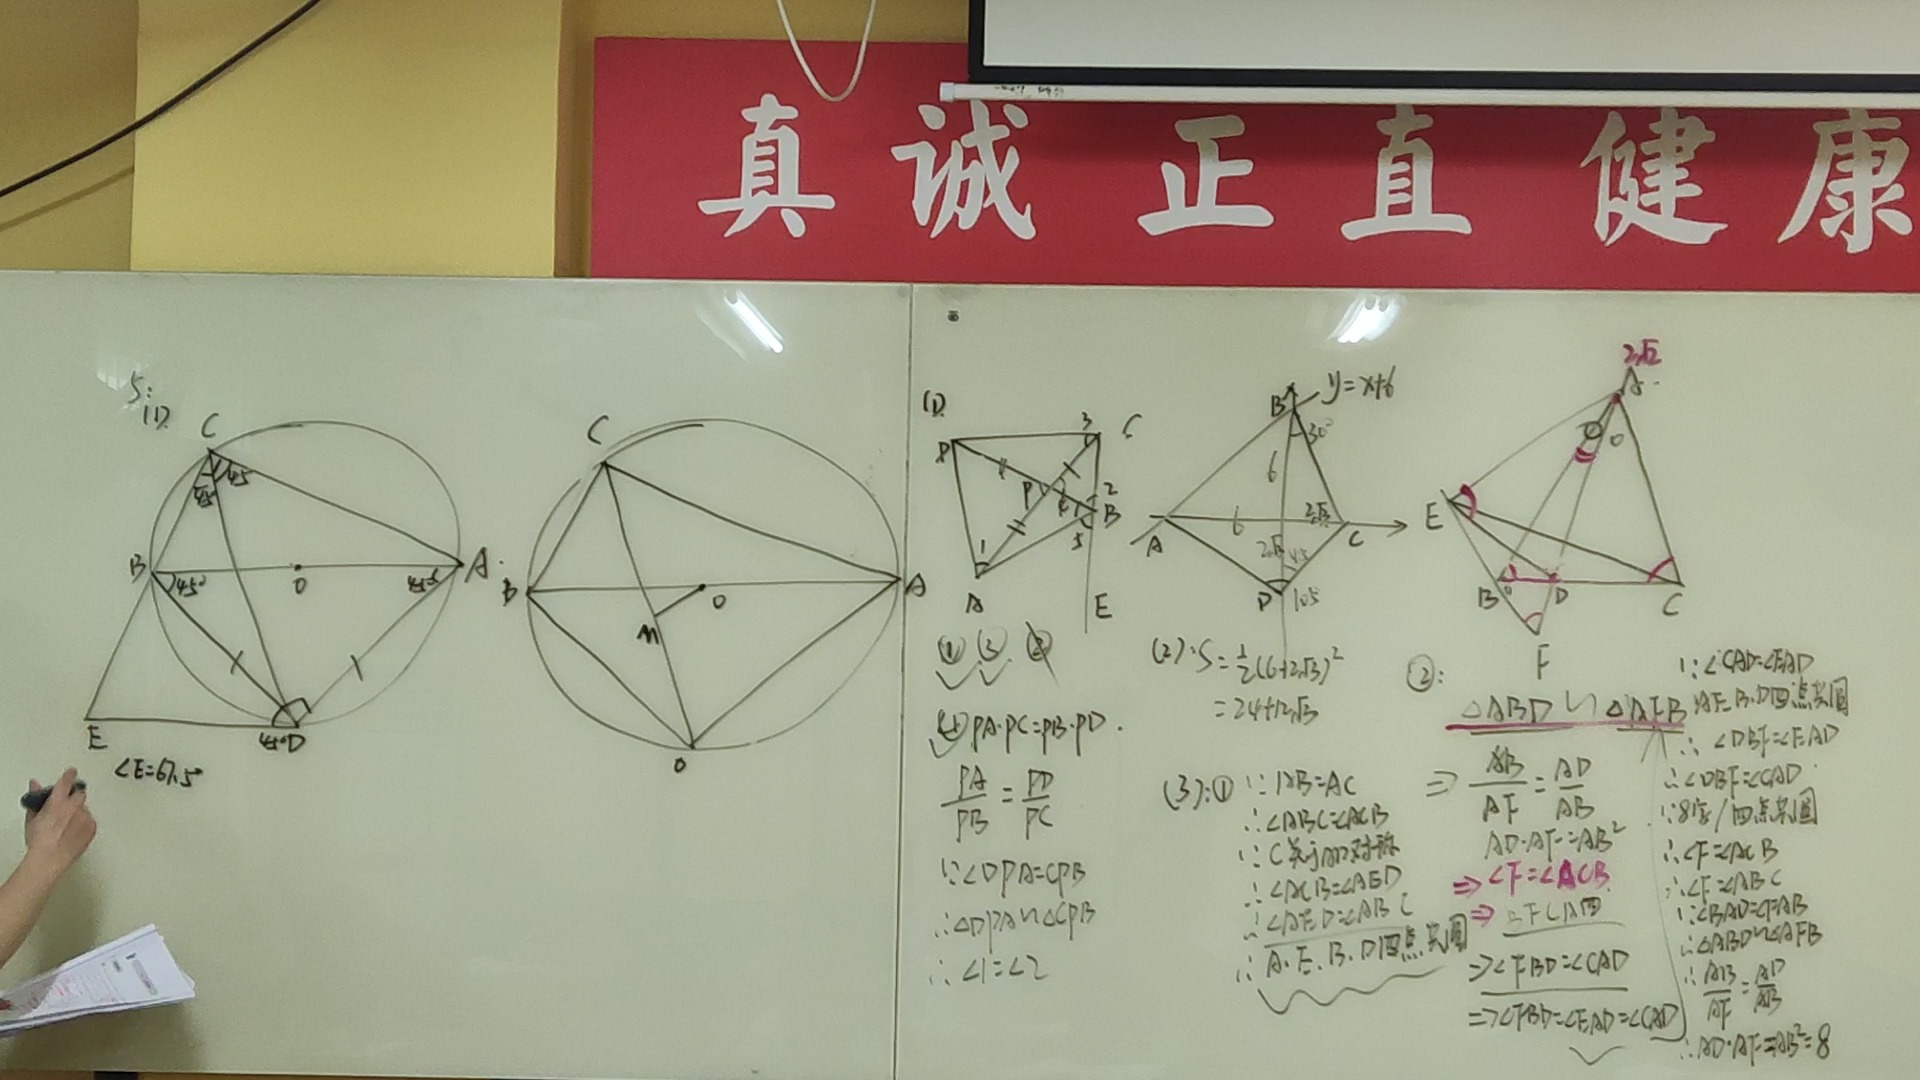 真诚正直健康
5:
(1)
C
45
45
B
45°
O
45°
A
E
45°
D
∠E=67.5°
C
B
O
A
M
D
(1)
3
C
P
2
B
5
1
A
E
① ③ ②
④PA·PC=PB·PD.
PA/PB=PD/PC
∵∠DPA=CPB
∴△DPA∽△CPB
∴∠1=∠2
B
y=x+6
30°
6
6
2√3
A
C
2√3
45
D
105
(2):S=½(6+2√3)²
=24+12√3
(3):①∵AB=AC
∴∠ABC=∠ACB
∵C关于AD对称
∴∠ACB=∠AED
∴∠AED=∠ABC
∴A.E.B.D四点共圆
2√2
A
E
B
D
C
F
②:
△ABD∽△AFB
⇒AB/AF=AD/AB
AD·AF=AB²
⇒∠F=∠ACB
⇒BFCA四
⇒∠FBD=∠CAD
⇒∠FBD=∠EAD=∠CAD
∵∠CAD=∠EAD
AE.B.D四点共圆
∴∠DBF=∠EAD
∴∠DBF=∠CAD
∵8字/四点共圆
∴∠F=∠ACB
∴∠F=∠ABC
∵∠BAD=∠FAB
∴△ABD∽△AFB
∴AB/AF=AD/AB
∴AD·AF=AB²=8